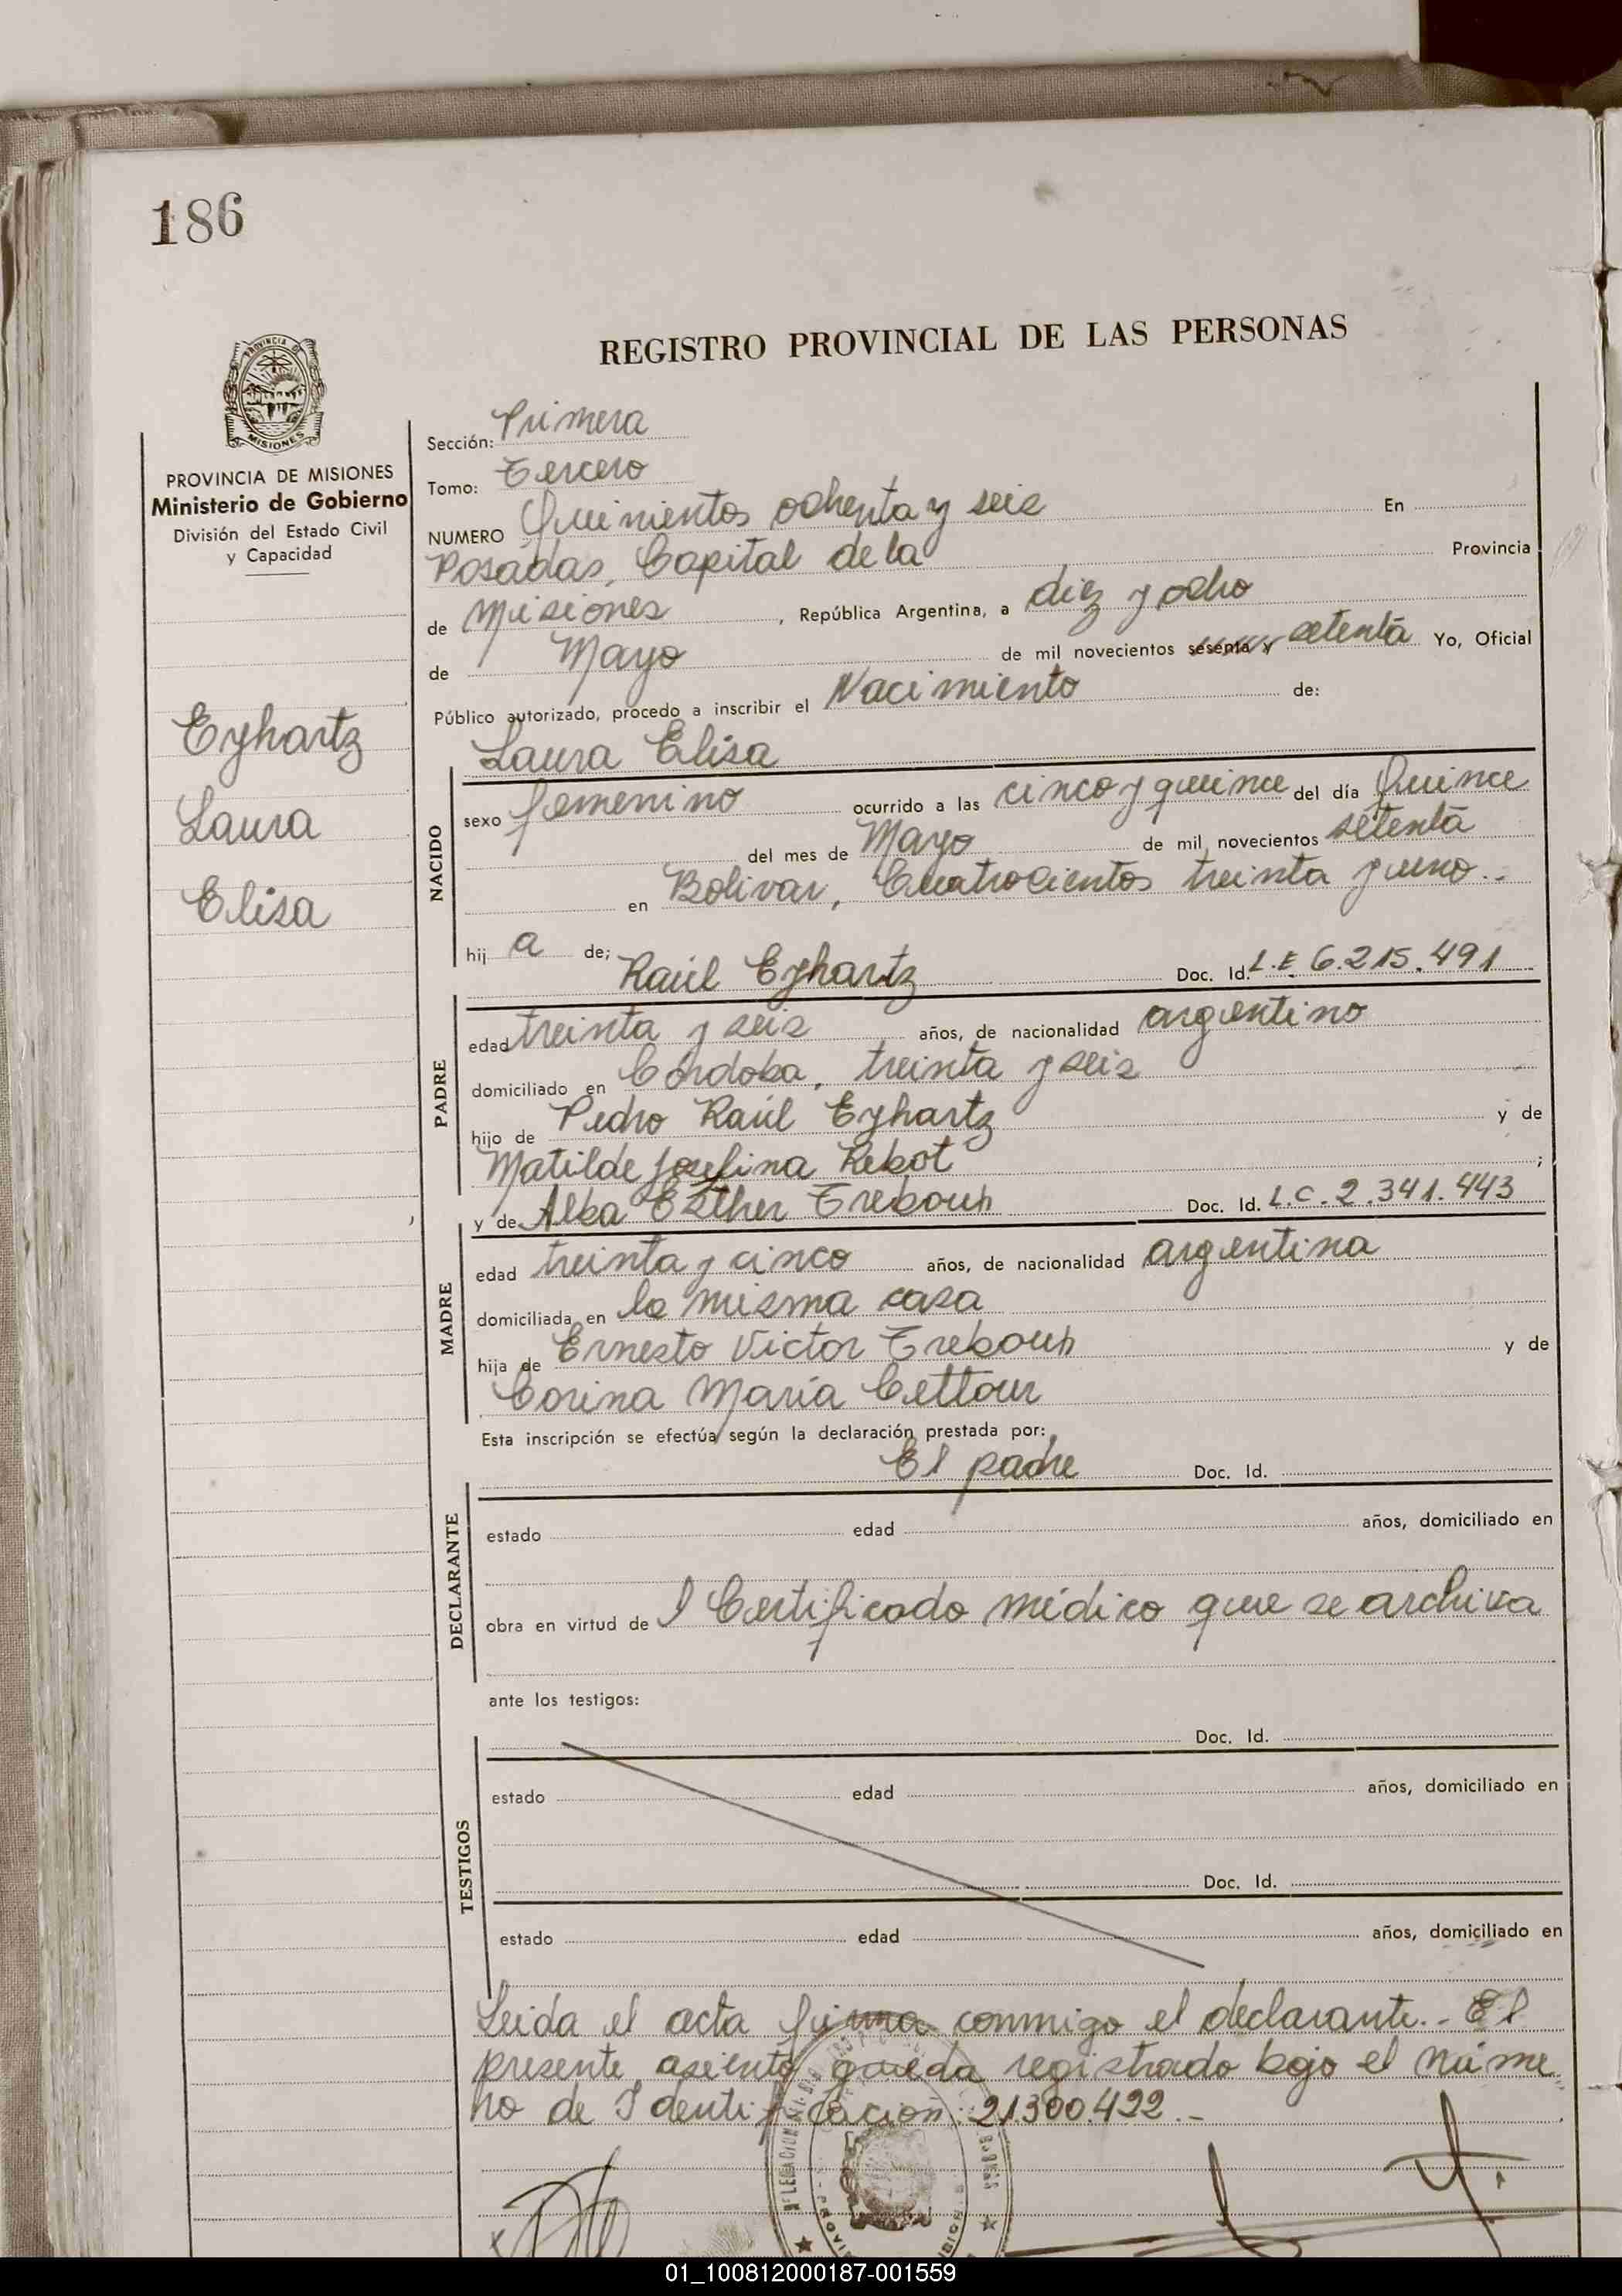 186
REGISTRO PROVINCIAL DE LAS PERSONAS
PROVINCIA DE MISIONES
PROVINCIA DE MISIONES
Ministerio de Gobierno
División del Estado Civil
y Capacidad
Eyhartz
Laura
Elisa
Sección: Primera
Tomo: Tercero
NUMERO Quinientos ochenta y seis En
Posadas, Capital de la Provincia
de Misiones, República Argentina, a diez y ocho
de Mayo de mil novecientos sesenta y setenta Yo, Oficial
Público autorizado, procedo a inscribir el Nacimiento de:
Laura Elisa
NACIDO
sexo femenino ocurrido a las cinco y quince del día Quince
del mes de Mayo de mil novecientos setenta
en Bolivar, Cuatrocientos treinta y uno.-
hij a de; Raúl Eyhartz Doc. Id. L.E. 6.215.491
PADRE
edad treinta y seis años, de nacionalidad argentino
domiciliado en Córdoba, treinta y seis
hijo de Pedro Raúl Eyhartz y de
Matilde Josefina Rebot ;
y de Alba Esther Treboux Doc. Id. L.C. 2.341.443
MADRE
edad treinta y cinco años, de nacionalidad argentina
domiciliada en la misma casa
hija de Ernesto Victor Treboux y de
Corina María Cettour
Esta inscripción se efectúa según la declaración prestada por:
El padre Doc. Id.
DECLARANTE
estado edad años, domiciliado en
obra en virtud de l Certificado médico que se archiva
ante los testigos:
Doc. Id.
TESTIGOS
estado edad años, domiciliado en
Doc. Id.
estado edad años, domiciliado en
Leida el acta firma conmigo el declarante.- El
presente asiento queda registrado bajo el núme
ro de Identificación: 21.300.422.-
01_100812000187-001559